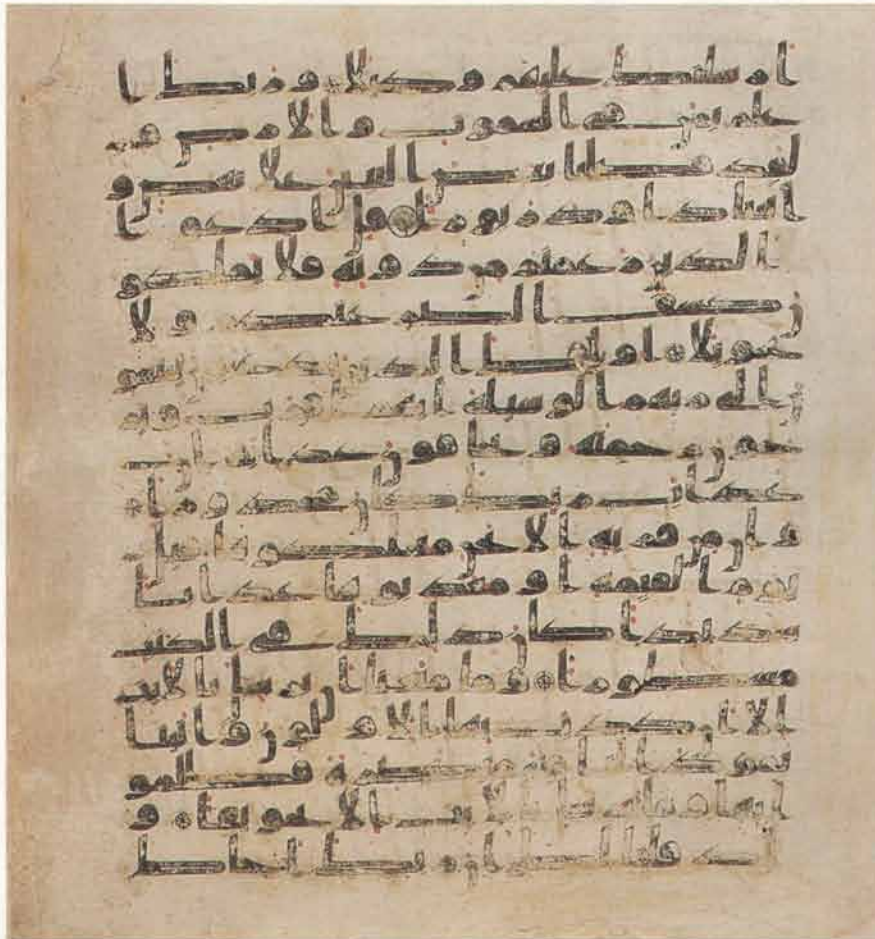 ارسلنك عليهم وكيلا وربك ا
علم بمن في السموت والارض و
لقد فضلنا بعض النبين على بعض و
اتينا داود زبورا قل ادعوا
الذين زعمتم من دونه فلا يملكو
ن كشف الضر عنكم ولا
تحويلا اولئك الذين يدعون يبتغو
ن الى ربهم الوسيلة ايهم اقرب وير
جون رحمته ويخافون عذابه ان
عذاب ربك كان محذورا و
ان من قرية الا نحن مهلكوها قبل
يوم القيمة او معذبوها عذابا
شديدا كان ذلك في الكتب
مسطورا وما منعنا ان نرسل بالايت
الا ان كذب بها الاولون واتينا
ثمود الناقة مبصرة فظلمو
ا بها وما نرسل بالايت الا تخويفا و
اذ قلنا لك ان ربك احاط